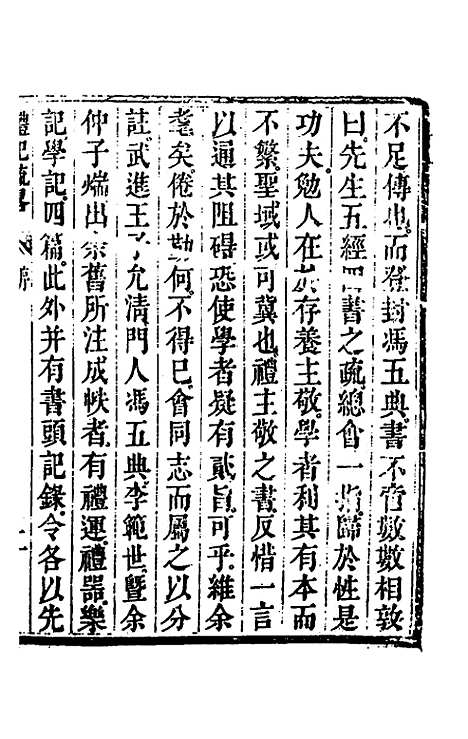 不足傳也而登封馮五典書不啻數數相敦
曰先生五經四書之疏總會一指歸於性是
功夫勉人在於存養主敬學者利其有本而
不繁聖域或可冀也禮主敬之書反惜一言
以通其阻礙恐使學者疑有貳旨可乎維余
耄矣倦於勘何不得已會同志而屬之以分
註武進王子允清門人馮五典李範世暨余
仲子㵮出余舊所注成帙者有禮運禮器樂
記學記四篇此外并有書頭記錄令各以先
禮記疏畧 序 二